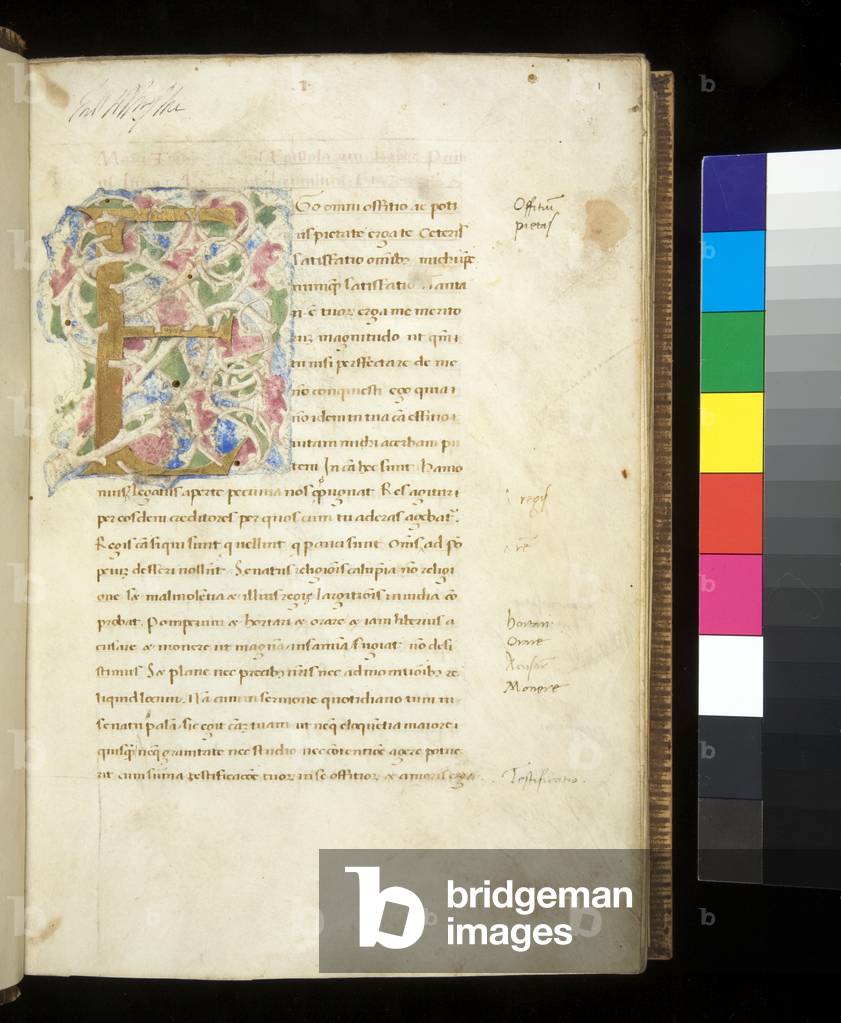 1
E
Go omni offitio ac poti
us pietate erga te Ceteris
satisfatio omĩbȝ michi ipẽ
nunqȝ satisfatio. Tanta
n. ẽ tuoꝝ erga me merito
ꝝ magnitudo ut qm̃ t
tu nisi perffectare de me
nõ conquiesti ego quia ĩ
nõ idem in tua cã effitio ĩ
uitam michi acerbam pu
tem In cã hec sunt hamo
nius legatus aperte pecunia nos oppugnat Res agitur ĩ
per eosdem creditores per quos cum tu aderas agebat.
Regis cã si qui sunt q uellint q pauci sunt Om̃s ad põ
peiuȝ deferri nollũt. Senatus religiõis calũpnia nõ religi
one sȝ maliuolẽtia & illius regię largitiõis inuidia cõ
probat. Pompeium & hortari & orare & iam liberius a
cusare & monere ut magnã infamiã fugiat nõ desi
stimus Sȝ plane nec precibȝ nr̃is nec admonitiõibȝ re
liquid locum. Nã cum in sermone quotidiano tum ĩn
senatu palã sic egit cãȝ tuam ut neqȝ eloquẽtia maiore ĩ
quisqȝ neqȝ grauitate nec studio nec cõtentiõe agere potue
rit cum sũma testificatiõe tuoꝝ in se offitioꝝ & amoris erga
Offitiũ
pietas
regis
hortari
Orare
Acusar
Monere
Testificatio.
b bridgeman
images